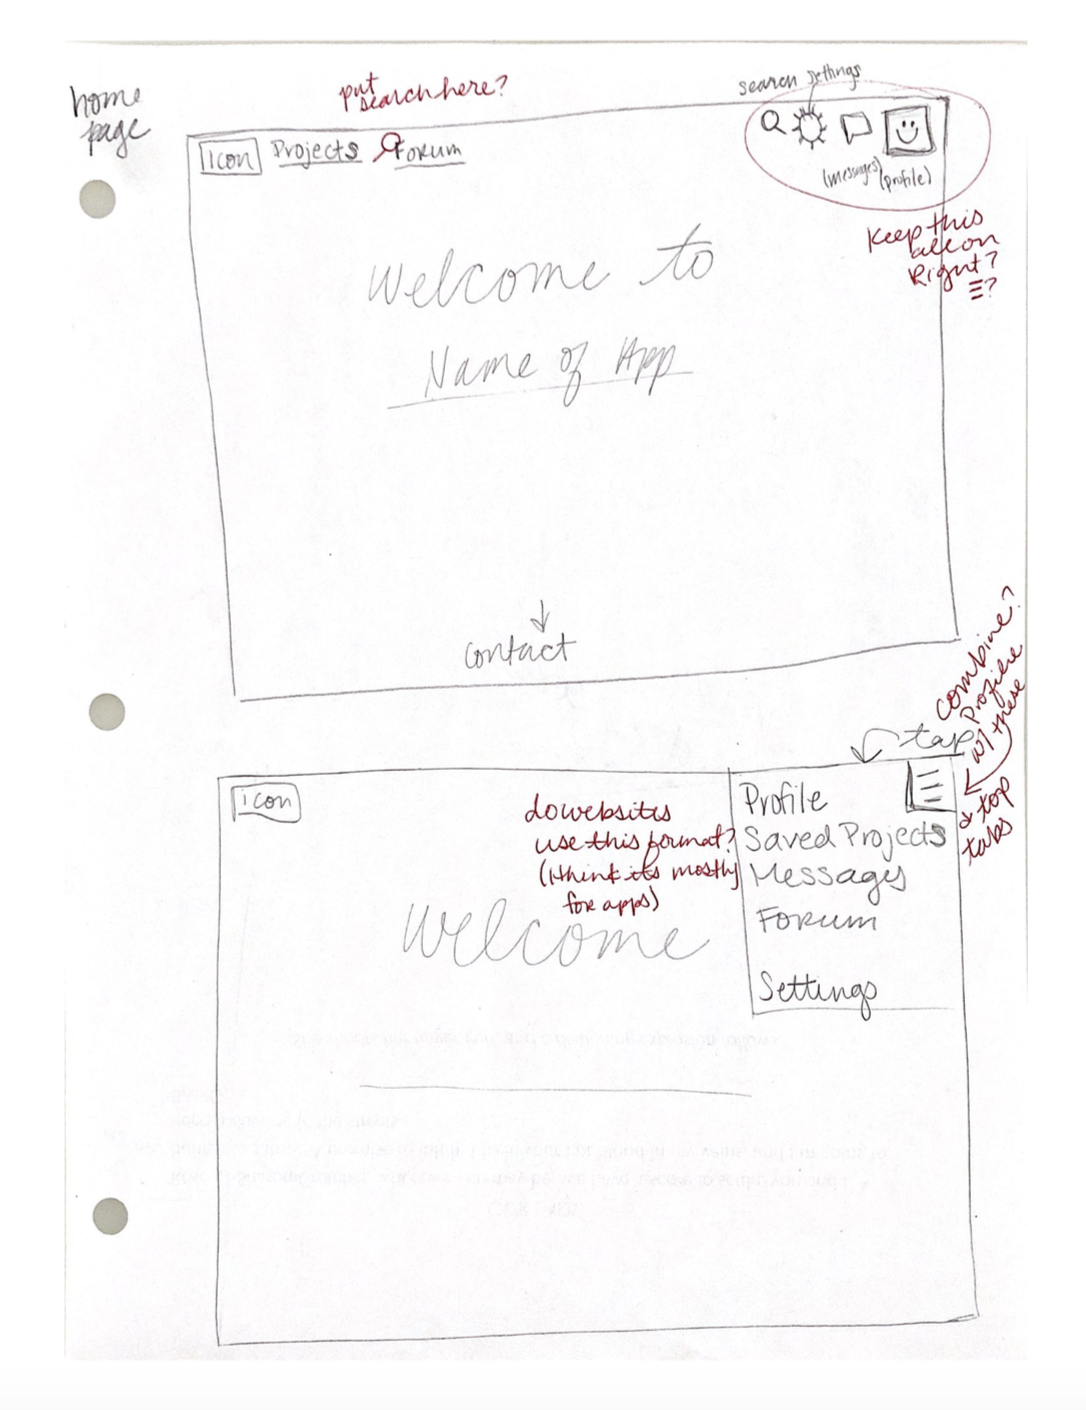 home
page
put
search here?
search settings
icon Projects Forum
(messages) (profile)
Keep this
all on
Right?
Welcome to
Name of App
contact
combine?
Profile
w/ these
& top
tabs
tap
icon
do websites
use this format?
(I think its mostly
for apps)
Profile
Saved Projects
Messages
Forum
Settings
Welcome